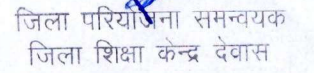 जिला परियोजना समन्वयक
जिला शिक्षा केन्द्र देवास